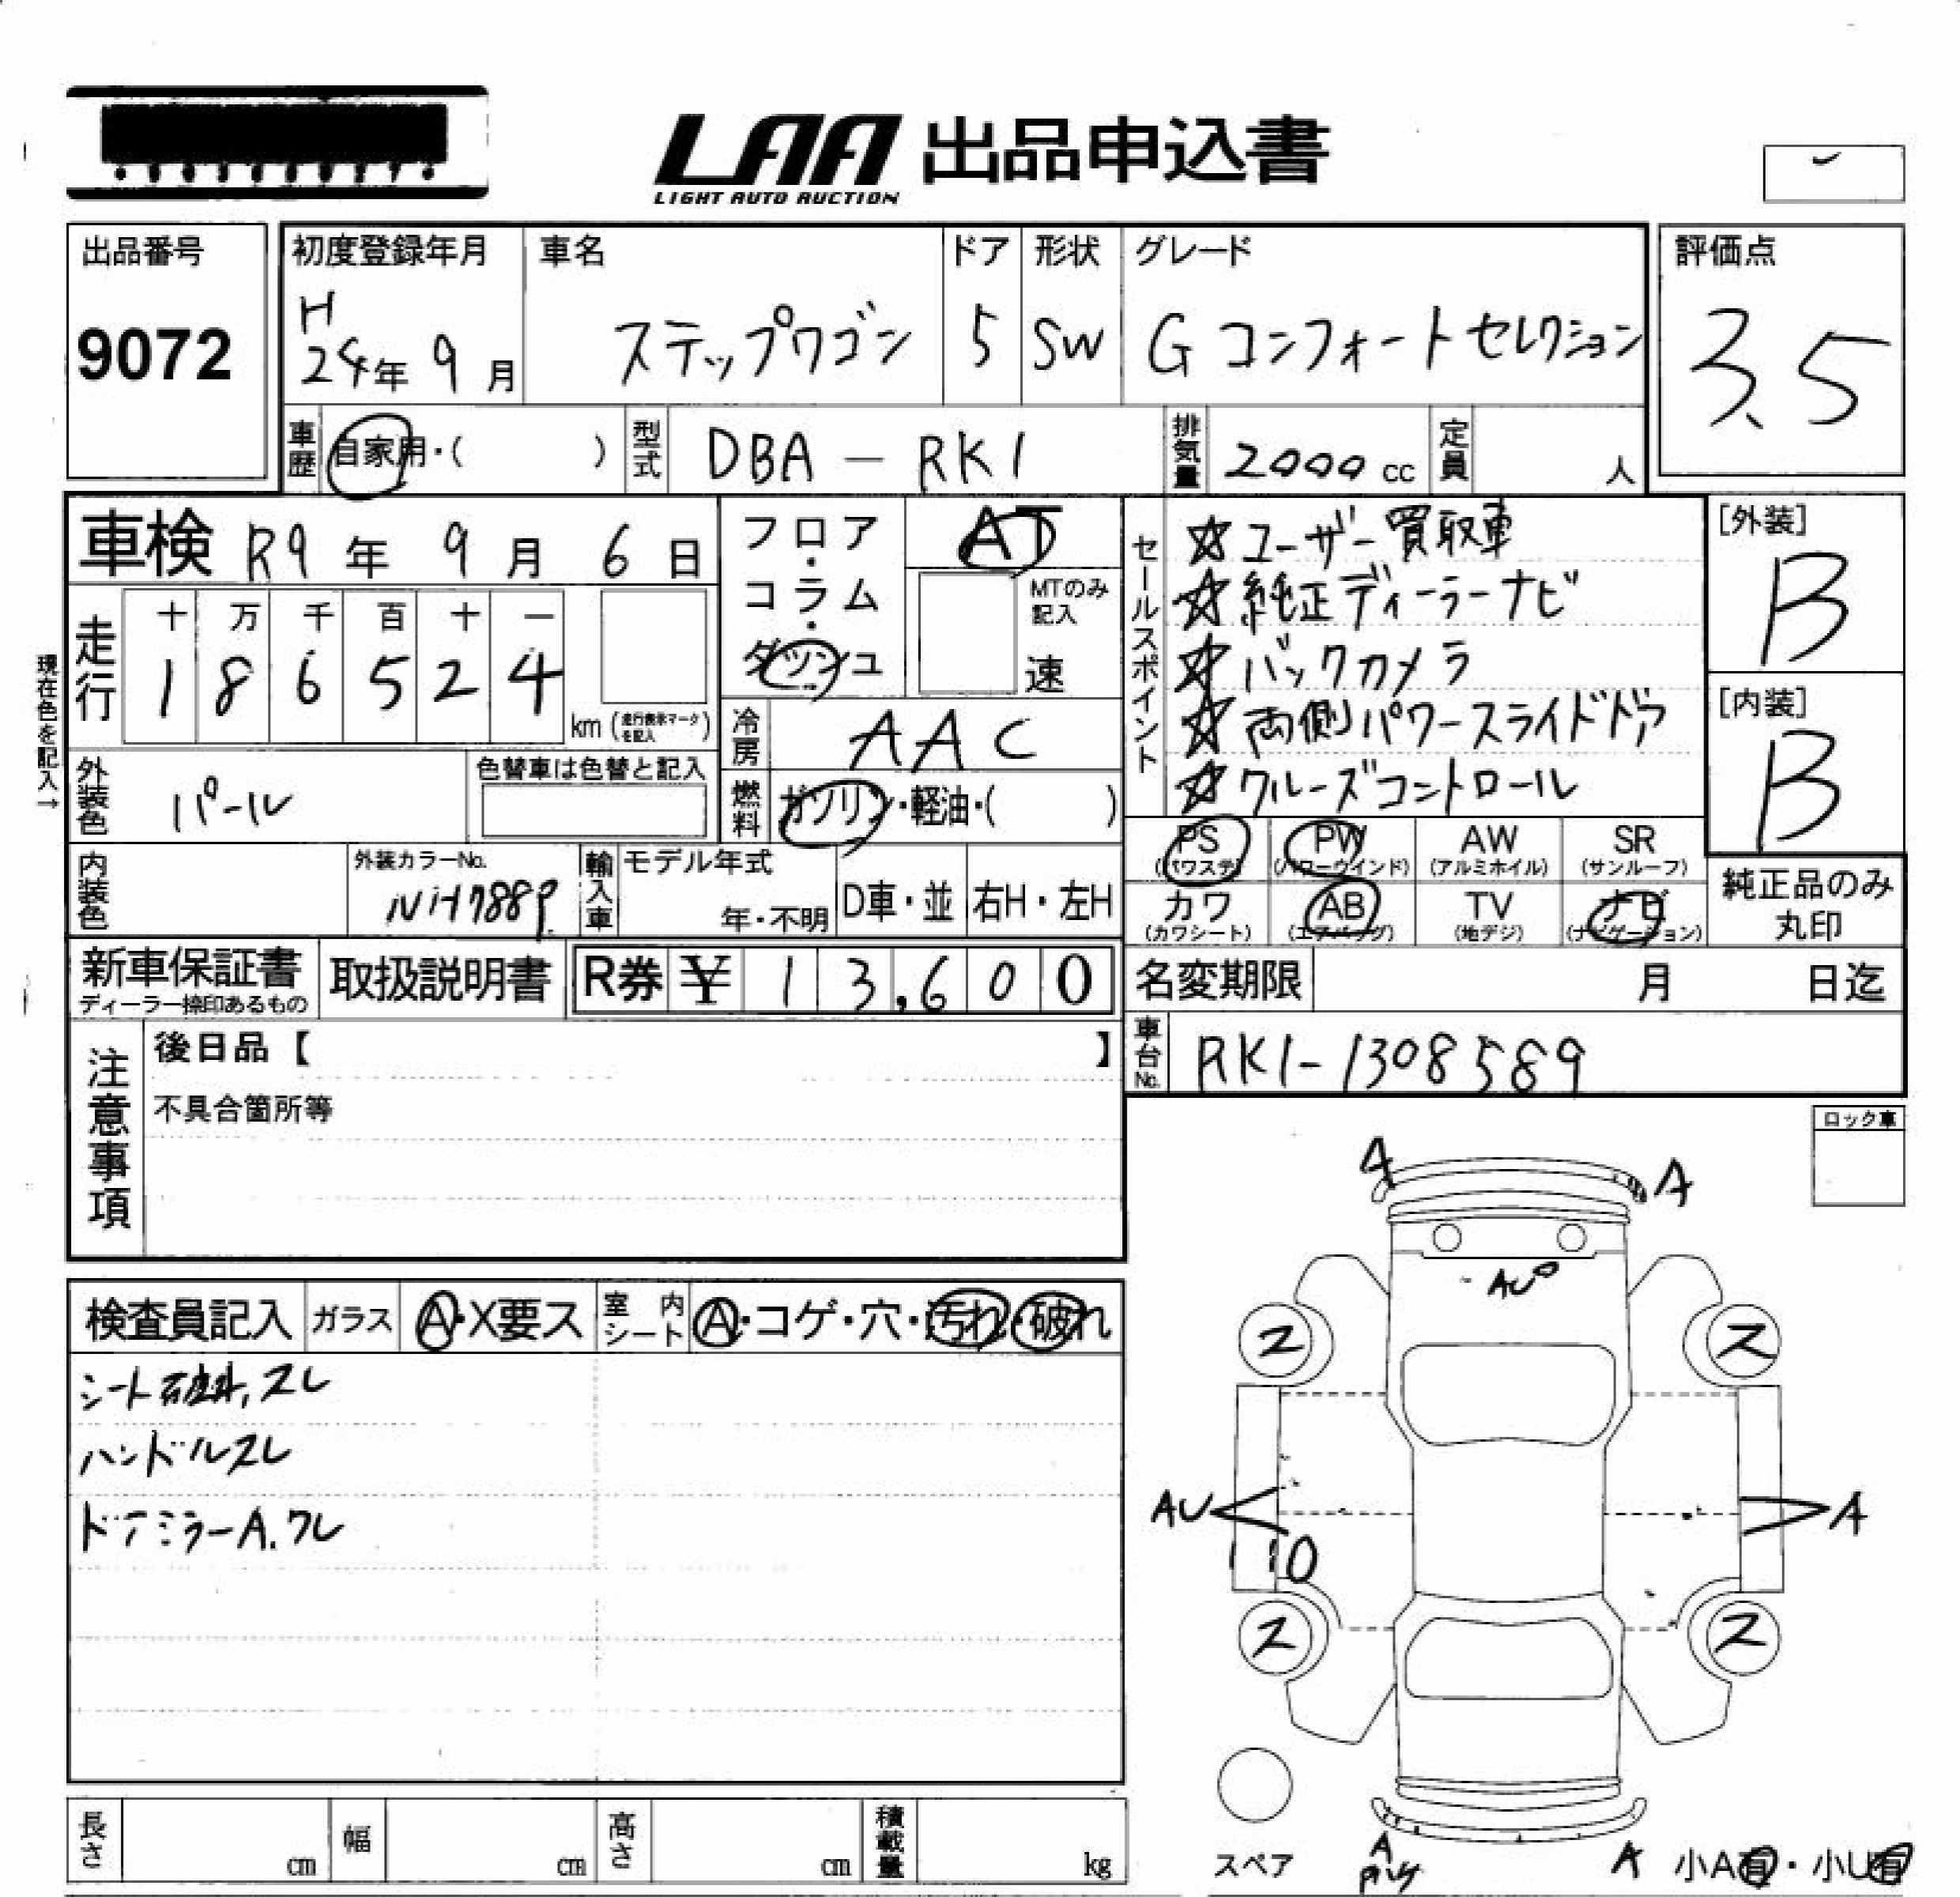 LAA 出品申込書
LIGHT AUTO AUCTION
出品番号
9072
初度登録年月
H
24年 9月
車名
ステップワゴン
ドア
5
形状
SW
グレード
G コンフォートセレクション
評価点
3.5
車歴
自家用・( )
型式
DBA - RK1
排気量
2000 cc
定員
人
車検 R9年 9月 6日
現在色を記入→
走行
十 万 千 百 十 一
1 8 6 5 2 4
km (走行表示マークを記入)
フロア・コラム・ダッシュ
AT
MTのみ記入
速
冷房
AAC
燃料
ガソリン・軽油・( )
セールスポイント
☆ユーザー買取車
☆純正ディーラーナビ
☆バックカメラ
☆両側パワースライドドア
☆クルーズコントロール
[外装]
B
[内装]
B
外装色
パール
色替車は色替と記入
内装色
外装カラーNo.
NH788P
輸入車
モデル年式
年・不明
D車・並
右H・左H
PS (パワステ)
PW (パワーウインド)
AW (アルミホイル)
SR (サンルーフ)
カワ (カワシート)
AB (エアバッグ)
TV (地デジ)
ナビ (ナビゲーション)
純正品のみ
丸印
新車保証書
ディーラー捺印あるもの
取扱説明書
R券 ¥ 13,600
名変期限 月 日迄
車台No.
RK1-1308589
注意事項
後日品【 】
不具合箇所等
ロック車
検査員記入
ガラス
A・X要ス
室内シート
A・コゲ・穴・汚れ・破れ
シート破れ,スレ
ハンドルスレ
ドアミラーA.ワレ
A
A
AU
ス
ス
AU
A
10
ス
ス
スペア
A
A
小A有・小U有
長さ cm
幅 cm
高さ cm
積載量 kg